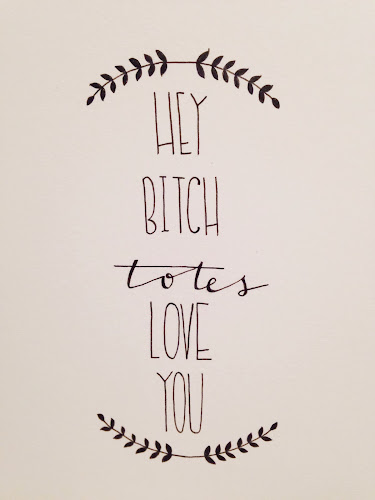 HEY
BITCH
totes
LOVE
YOU